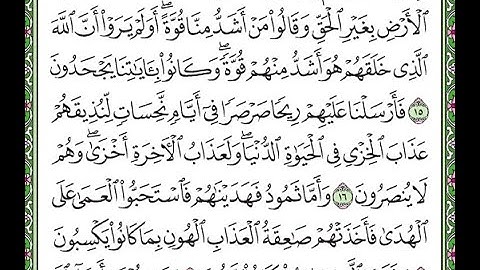 ٱلۡأَرۡضِ بِغَيۡرِ ٱلۡحَقِّ وَقَالُواْ مَنۡ أَشَدُّ مِنَّا قُوَّةًۖ أَوَلَمۡ يَرَوۡاْ أَنَّ ٱللَّهَ
ٱلَّذِي خَلَقَهُمۡ هُوَ أَشَدُّ مِنۡهُمۡ قُوَّةٗۖ وَكَانُواْ بِـَٔايَٰتِنَا يَجۡحَدُونَ
١٥ فَأَرۡسَلۡنَا عَلَيۡهِمۡ رِيحٗا صَرۡصَرٗا فِيٓ أَيَّامٖ نَّحِسَاتٖ لِّنُذِيقَهُمۡ
عَذَابَ ٱلۡخِزۡيِ فِي ٱلۡحَيَوٰةِ ٱلدُّنۡيَاۖ وَلَعَذَابُ ٱلۡأٓخِرَةِ أَخۡزَىٰۖ وَهُمۡ
لَا يُنصَرُونَ ١٦ وَأَمَّا ثَمُودُ فَهَدَيۡنَٰهُمۡ فَٱسۡتَحَبُّواْ ٱلۡعَمَىٰ عَلَى
ٱلۡهُدَىٰ فَأَخَذَتۡهُمۡ صَٰعِقَةُ ٱلۡعَذَابِ ٱلۡهُونِ بِمَا كَانُواْ يَكۡسِبُونَ